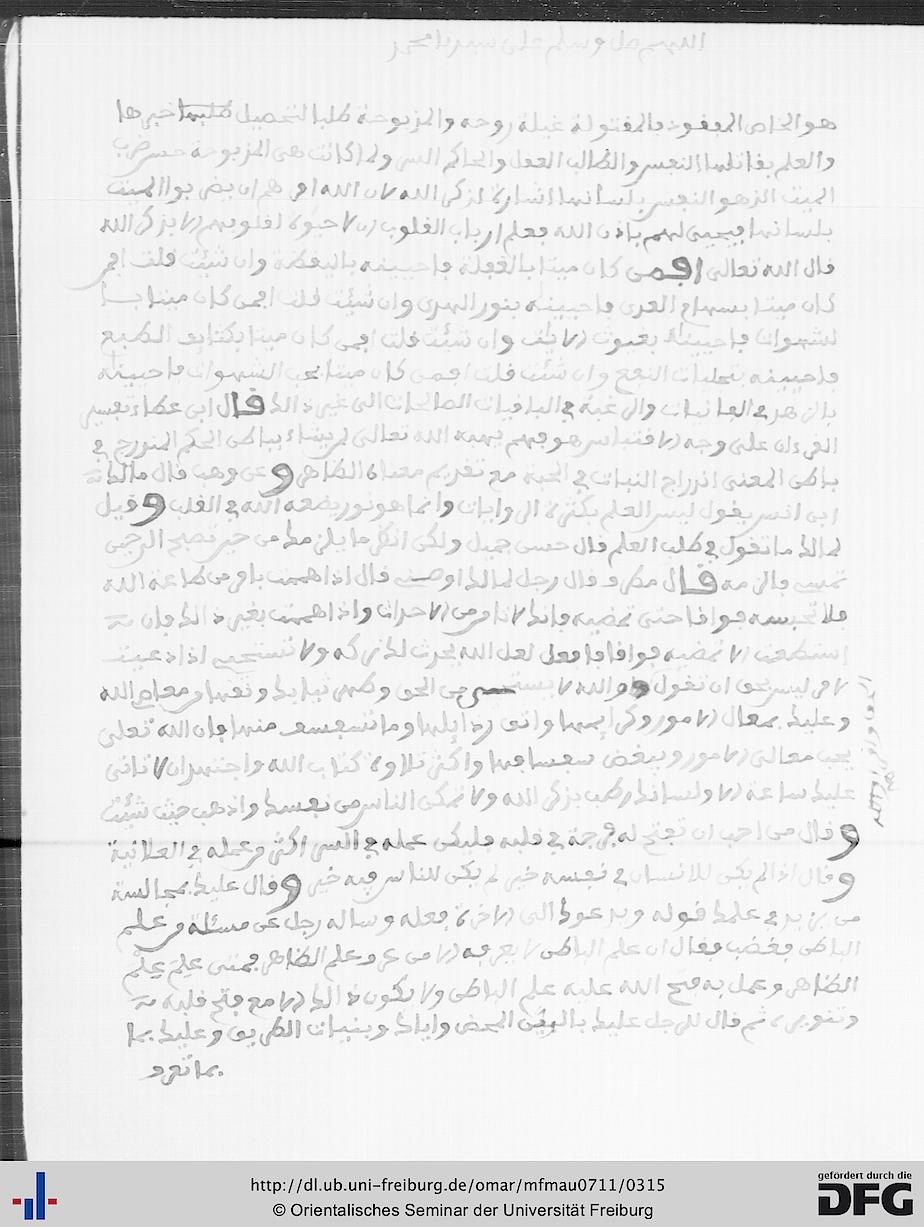 اللهم صل وسلم على سيدنا محمد
هو الخاص المعفود بالمقتولة غيلة روحه والمذبوحة طلبا لتحصيل خبرها
والعلم بقاتلها النفس والطالب العقل والحاكم السر ولما كانت هى المذبوحة حسن ضرب
الميت الذى هو النفس بلسانها اشارة لذكر الله لان الله امرهم ان يضربوا الميت
بلسانها فيحيى لهم باذن الله فعلم ارباب القلوب ان لا حيوة لقلوبهم الا بذكر الله
قال الله تعالى افمن كان ميتا بالغفلة فاحييناه باليقظة وان شئت قلت افمن
كان ميتا بسماع الهوى فاحييناه بنور الهدى وان شئت قلت افمن كان ميتا با
لشهوات فاحييناه وان شئت قلت افمن كان ميتا الطبع
فاحييناه بتجليات وان شئت قلت افمن كان ميتا بحب الشهوات فاحييناه
بالزهد في الفانيات والرغبة في الباقيات الصالحات الى غير ذالك قال ابن عطاء تفسير
القرءان على وجه الاقتباس هو فهم يهبه الله تعالى لمن يشاء بباطن الحكم المندرج في
باطن المعنى اندراج النبات في الحبة مع تقديم معناه الظاهر وعن وهب قال مالك
ابن انس يقول ليس العلم بكثرة الروايات وانما هو نور يضعه الله في القلب وقيل
لمالك ما تقول في طلب العلم قال حسن جميل ولكن انظر ما يلزمك من حين تصبح الى حين
تمسي فالزمه قال مطرف قال رجل لمالك اوصني قال اذا هممت بامر من طاعة الله
فلا تحبسه فواقا حتى تمضيه فانك لا تامن من الاحداث واذا هممت بغير ذالك فان
استطعت الا تمضيه فواقا فافعل لعل الله يحدث لك تركه ولا تستحي اذا دعيت
لامر ليس بحق ان تقول والله لا يستحي من الحق وطهر ثيابك ونقها من معاصي الله
وعليك بمعالي الامور وكرايمها واتق رذايلها وما سفسف منها فان الله تعلى
يحب معالي الامور ويبغض سفسافها واكثر تلاوة كتاب الله واجتهد ان لا تاتي
عليك ساعة الا ولسانك رطب بذكر الله ولا تمكن الناس من نفسك واذهب حيث شئت
وقال من احب ان تفتح له فرجة في قلبه فليكن عمله في السر اكثر من عمله في العلانية
وقال اذا لم يكن للانسان في نفسه خير لم يكن للناس فيه خير وقال عليك بمجالسة
من يزيد في علمك قوله ويدعوك الى الاخرة فعله وساله رجل عن مسئلة من علم
الباطن فغضب فقال ان علم الباطن لا يعرفه الا من عرف علم الظاهر فمتى علم علم
الظاهر وعمل به فتح الله عليه علم الباطن ولا يكون ذالك الا مع فتح قلبه
وتنويره ثم قال للرجل عليك بالدين المحض واياك وبنيات الطريق وعليك بما
بما تعرف
http://dl.ub.uni-freiburg.de/omar/mfmau0711/0315
© Orientalisches Seminar der Universität Freiburg
gefördert durch die
DFG